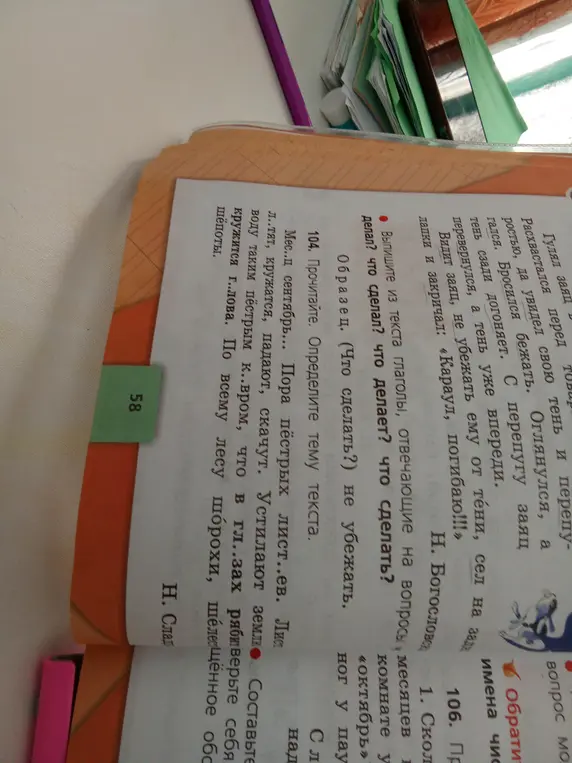 Гулял заяц
Расхвастался перед
ростью, да увидел свою тень и перепу-
гался. Бросился бежать. Оглянулся, а
тень сзади догоняет. С перепугу заяц
перевернулся, а тень уже впереди.
Видит заяц, не убежать ему от тени, сел на
лапки и закричал: «Караул, погибаю!!!»
Н. Богословс
Выпишите из текста глаголы, отвечающие на вопросы
делал? что сделал? что делает? что сделать?
Образец. (Что сделать?) не убежать.
104. Прочитайте. Определите тему текста.
Мес..ц сентябрь... Пора пёстрых лист..ев. Лис
л..тят, кружатся, падают, скачут. Устилают земл
воду таким пёстрым к..вром, что в гл..зах ряби
кружится г..лова. По всему лесу шо́рохи, ше́лес
шёпоты.
Н. Слад
58
вопрос мо
Обрати
имена чис
106. П
1. Скол
месяцев
комнате у
«октябрь»
ног у пау
С л
над
Составьте
верьте себя
щённое обо